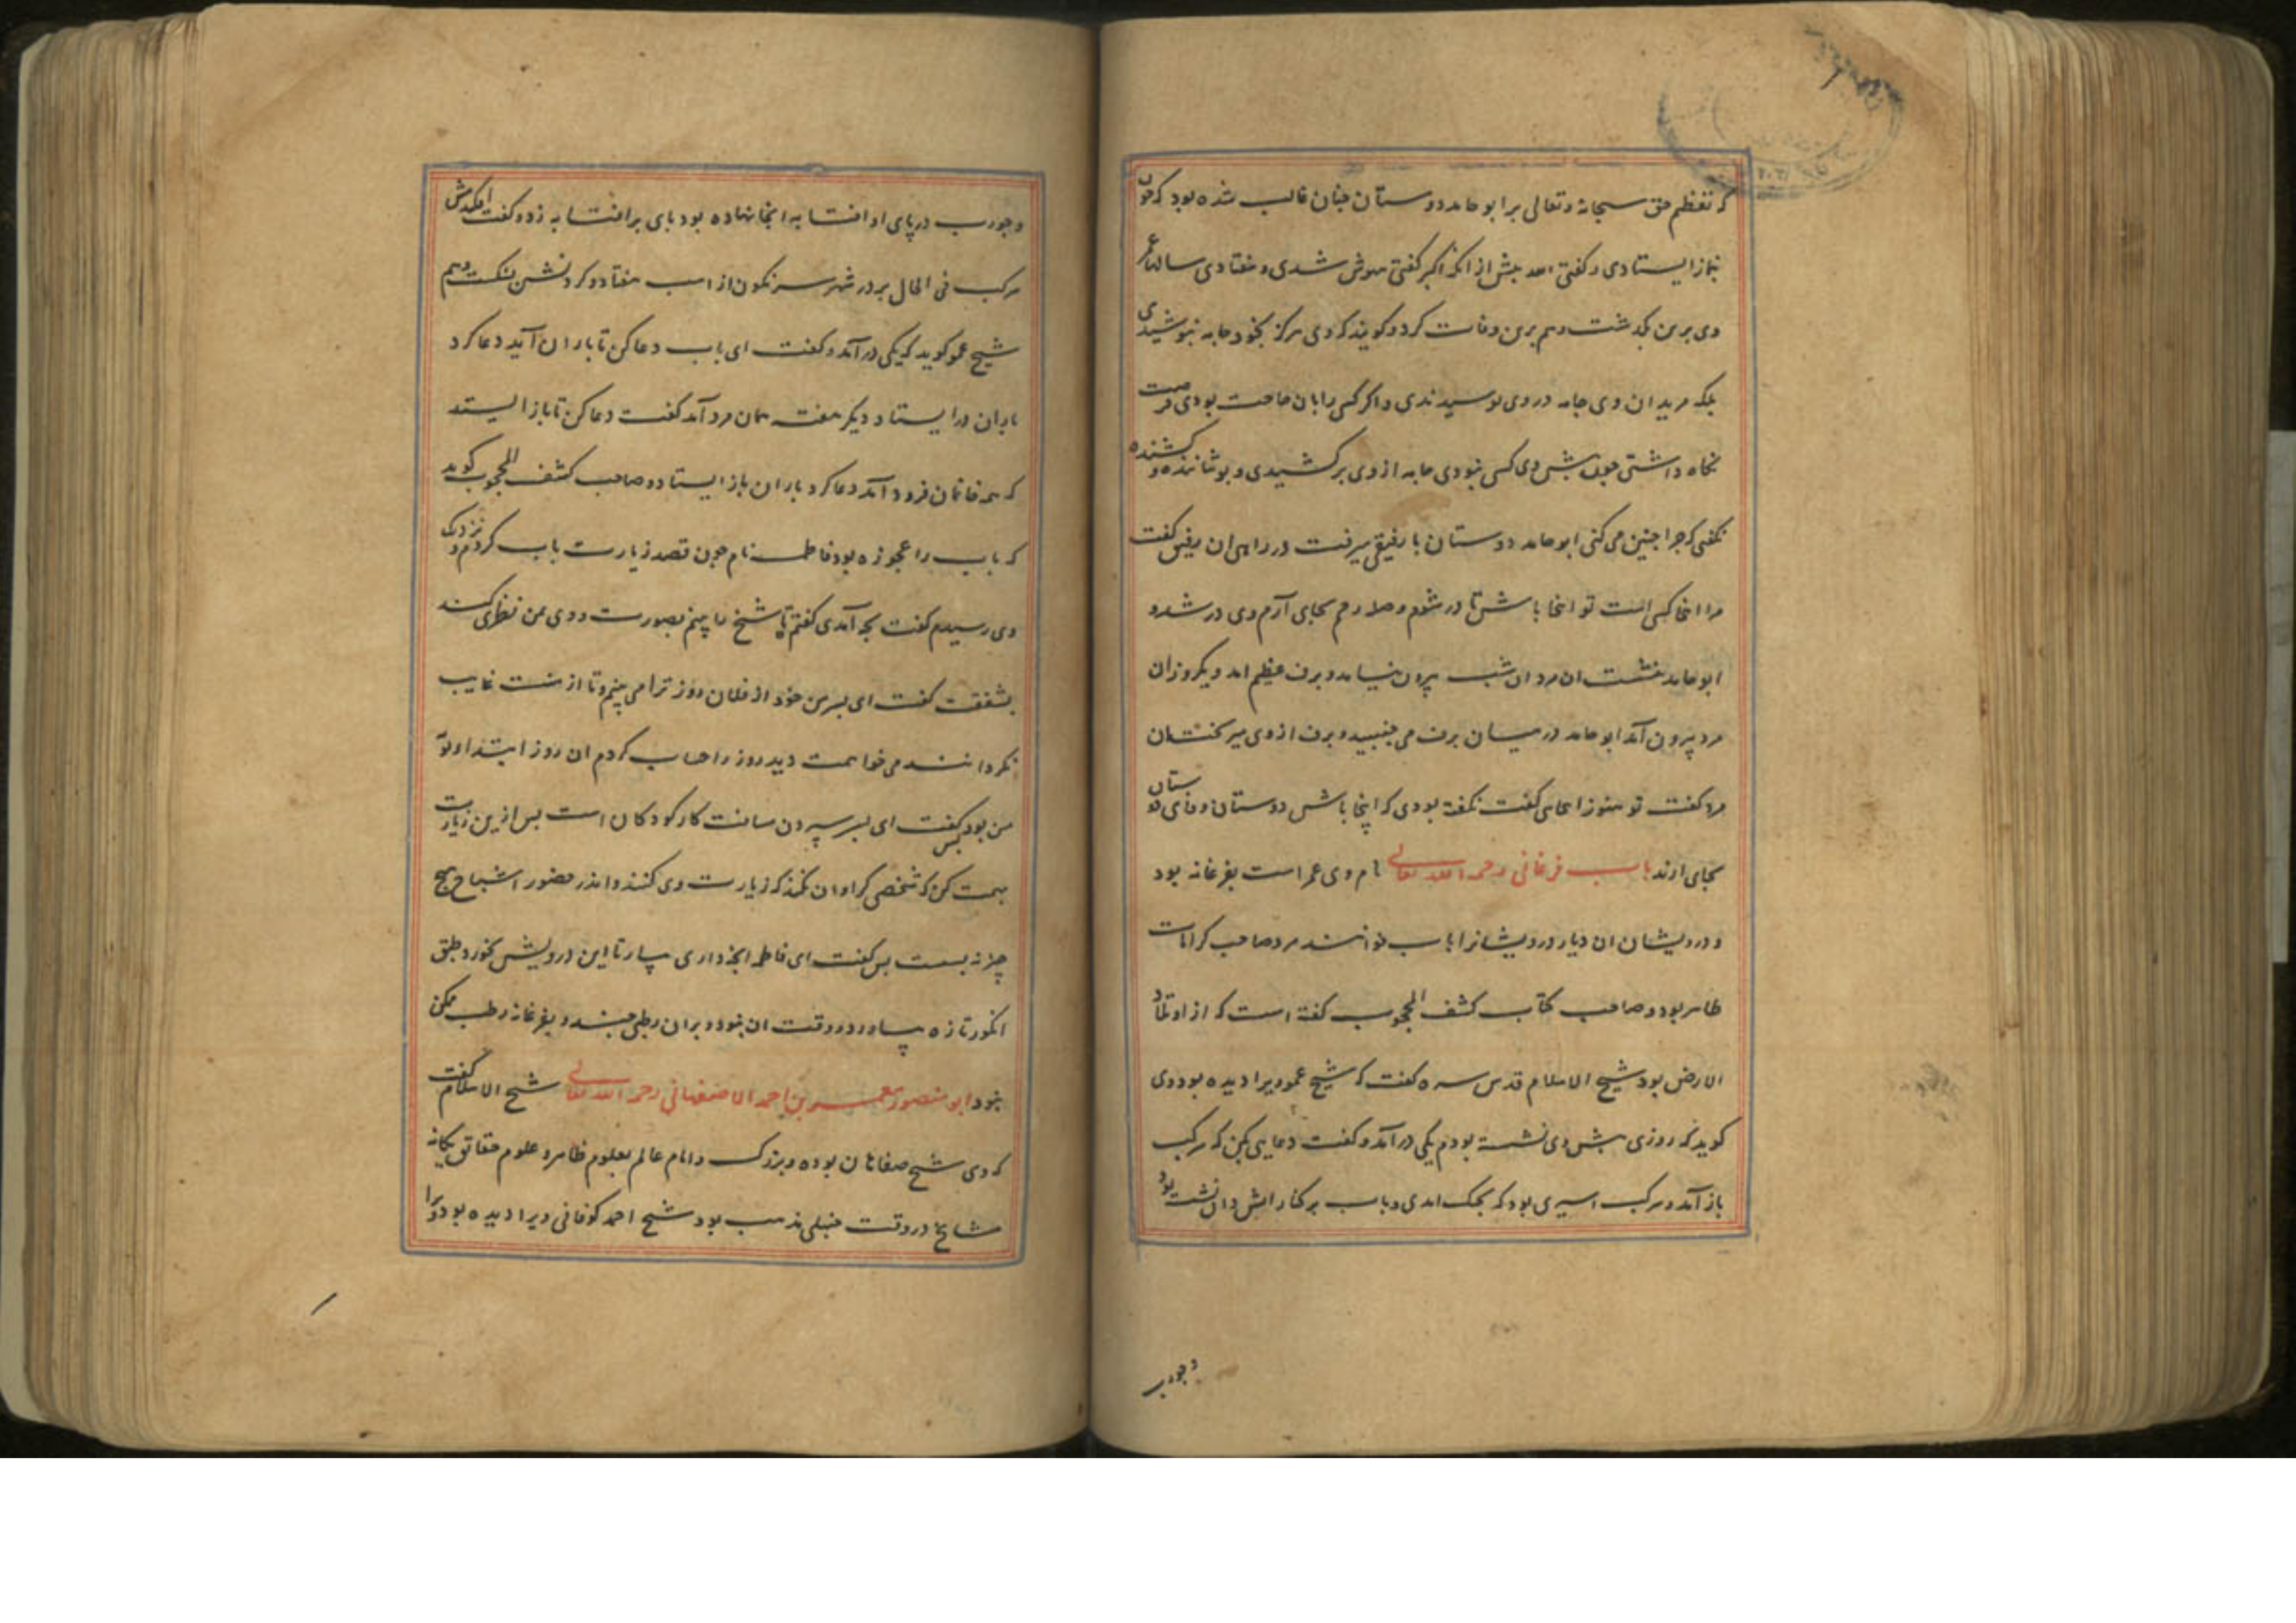 که تعظیم حق سبحانه و تعالی بر ابو حامد دوستان چنان غالب شده بود که چون
بنماز ایستادی و گفتی الله پیش از انکه اکبر گفتی بیهوش شدی و بیفتادی سالها عمر
وی برین بگذشت و هم برین وفات کرد و گویند که وی هرگز بخود جامه نپوشیدی
بلکه مریدان وی جامه در وی پوشیدندی و اگر کسی را بان حاجت بودی فرصت
نگاه داشتی چون پیش وی کسی نبودی جامه از وی برکشیدی و پوشاننده و کشنده
نگفتی که چرا چنین می کنی ابو حامد دوستان با رفیقی میرفت در راهی ان رفیق گفت
مرا اینجا کسی است تو اینجا باش تا در شوم و صله رحم بجای آرم وی در شد و
ابو حامد بنشست ان مرد ان شب بیرون نیامد و برف عظیم امد دیگر روز ان
مرد بیرون آمد ابو حامد در میان برف می جنبید و برف از وی میریخت ان
مرد گفت تو هنوز اینجایی گفت نگفته بودی که اینجا باش دوستان وفای دوستان
بجای ارند باب فرغانی رحمه الله تعالی نام وی عمر است بفرغانه بود
و درویشان ان دیار درویشانرا باب خوانند مرد صاحب کرامات
ظاهر بود و صاحب کتاب کشف المحجوب گفته است که از اوتاد
الارض بود شیخ الاسلام قدس سره گفت که شیخ عمو ویرا دیده بود وی
گوید که روزی پیش وی نشسته بودم یکی در آمد و گفت دعایی بکن که مرکب
باز آمد و مرکب اسیری بود که بجنک امدی و باب بر کنار اتش دان نشسته بود
وجورب
وجورب در پای او افتابه انجا نهاده بود پای بر افتابه زد و گفت افکندمش
مرکب فی الحال بر در شهر سرنگون از اسب بیفتاد و گردنش بشکست و هم
شیخ عمو گوید که یکی در آمد و گفت ای باب دعا کن تا باران آید دعا کرد
باران در ایستاد دیگر هفته همان مرد آمد گفت دعا کن تا باز ایستد
که همه خانمان فرود آمد دعا کرد باران باز ایستاد و صاحب کشف المحجوب گوید
که باب را عجوزه بود فاطمه نام چون قصد زیارت باب کردم و نزدیک
وی رسیدم گفت بچه آمدی گفتم تا شیخ را بینم بصورت و وی بمن نظری کند
بشفقت گفت ای پسر من خود از فلان روز ترا می بینم و تا از منت غایب
نگردانند می خواهمت دید روز را حساب کردم ان روز ابتداء توبه
من بود پس گفت ای پسر سپردن مسافت کار کودکان است پس ازین زیارت
بهمت کن که شخصی کرای ان نکند که زیارت وی کنند و اندر حضور اشباح هیچ
چیز نه بسته پس گفت ای فاطمه انچه داری بیار تا این درویش بخورد طبقی
انگور تازه بیاورد و وقت ان نبود و بران رطبی چند و بفرغانه رطب ممکن
نبود ابو منصور معمر بن احمد الاصفهانی رحمه الله تعالی شیخ الاسلام گفت
که وی شیخ صفاهان بوده و بزرگ و امام عالم بعلوم ظاهر و علوم حقائق یگانه
مشایخ در وقت حنبلی مذهب بود شیخ احمد کوفانی ویرا دیده بود و ویرا